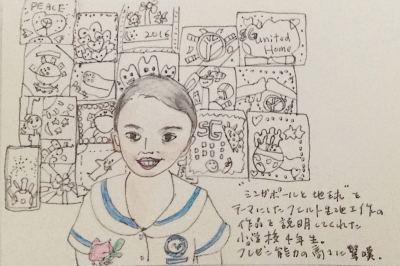 PEACE
2016
SG
United
Home
SG
"シンガポールと地球"を
テーマにしたフェルト生地工作の
作品を説明してくれた
小学校4年生。
プレゼン能力の高さに驚嘆。